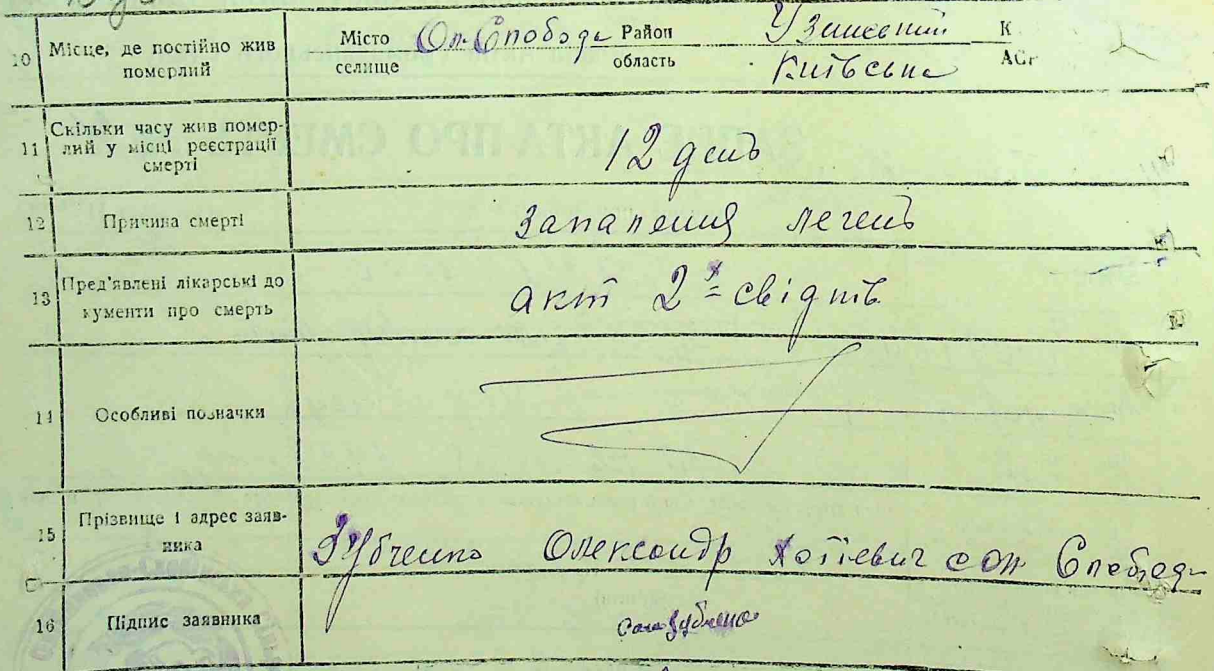 10 Місце, де постійно жив Місто Оп. Слобода Район Узинський К
померлий селище область Київська АСР
11 Скільки часу жив помер-
лий у місці реєстрації
смерті 12 день
12 Причина смерті Запалення легень
13 Пред'явлені лікарські до
кументи про смерть акт 2х свідків
14 Особливі позначки
15 Прізвище і адрес заяв-
ника Зубченко Олександр Слобода
16 Підпис заявника